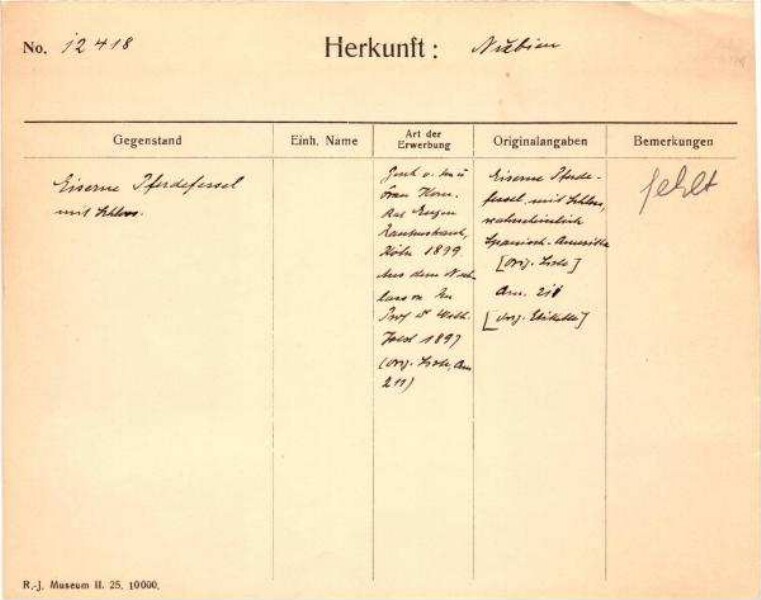 No. 12418 Herkunft: Nubien
Gegenstand Einh. Name Art der Erwerbung Originalangaben Bemerkungen
Eiserne Pferdefessel
mit Schloss.
Gesch. v. Herrn u
Frau Kom.
Rat Eugen
Rautenstrauch,
Köln 1899.
Aus dem Nach-
lass von
Prof Dr Wilh.
Joest 1897
(orig. Liste, Am
211)
Eiserne Pferde-
fessel, mit Schloss,
wahrscheinlich
Spanisch-Amerika
[orig. Liste]
Am. 211
[orig. Etikette]
fehlt
R.-J. Museum II. 25. 10000.